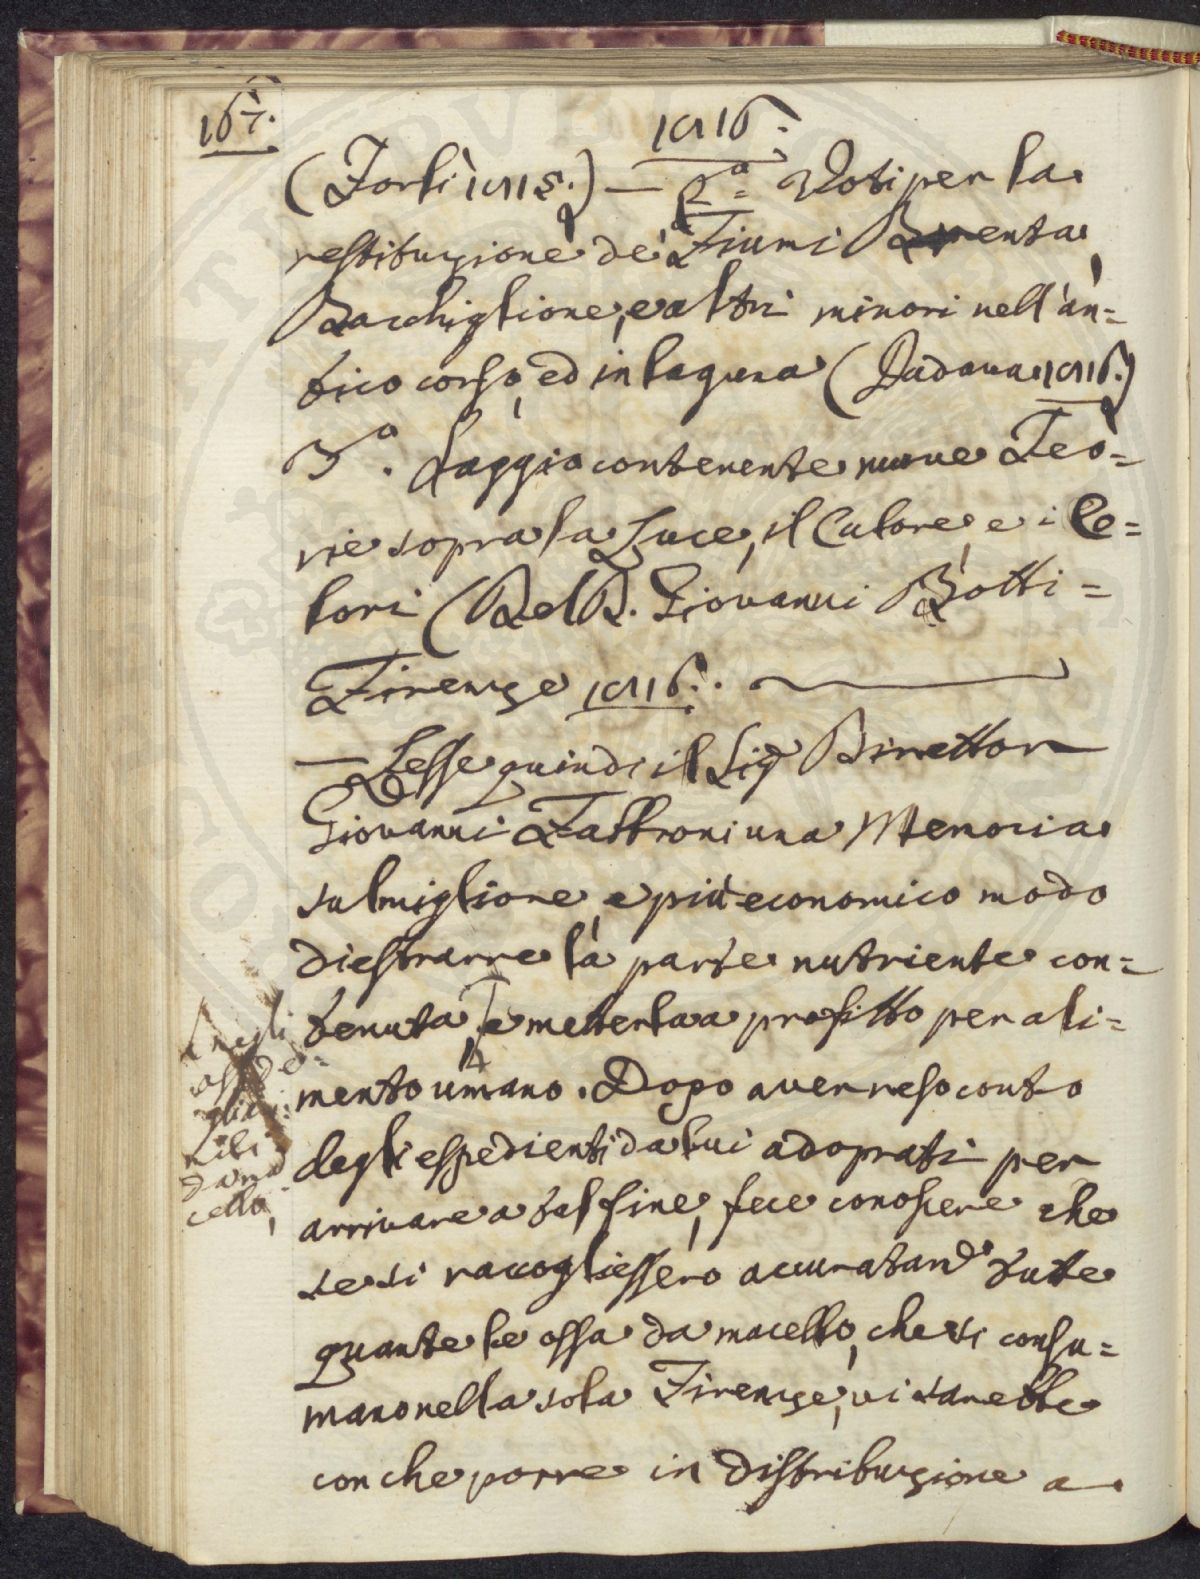 167.
1816.
(Forlì 1815.) — 2.a Voti per la
restituzione de' Fiumi Brenta,
Bacchiglione, e altri minori nell'an=
tico corso, ed in laguna (Padova 1816.)
3.a Saggio contenente nuove Teo=
rie sopra la Luce, il Calore, e i Co=
lori (Del D. Giovanni Botti=
Firenze 1816. —
— Lesse quindi il Sig.r Direttor
Giovanni Fabbroni una Memoria
sul migliore, e più economico modo
di estrarre la parte nutriente con=
tenuta, e metterla a profitto per ali=
mento umano. Dopo aver reso conto
degli espedienti da lui adoprati per
arrivare a tal fine, fece conoscere che
se si raccogliessero accuratam.e tutte
quante le ossa da macello, che si consu=
mano nella sola Firenze, vi sarebbe
con che porre in distribuzione a
negli
da ma
cello,